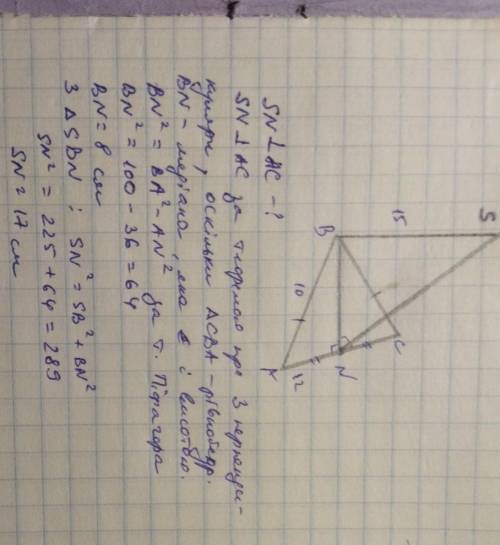 S
15
B
10
C
N
12
A
SN ⊥ AC - ?
SN ⊥ AC за теоремою про 3 перпенди-
куляри, оскільки △CBA - рівнобедр.
BN - медіана, яка є і висотою.
BN² = BA² - AN² за т. Піфагора
BN² = 100 - 36 = 64
BN = 8 см
З △SBN : SN² = SB² + BN²
SN² = 225 + 64 = 289
SN = 17 см